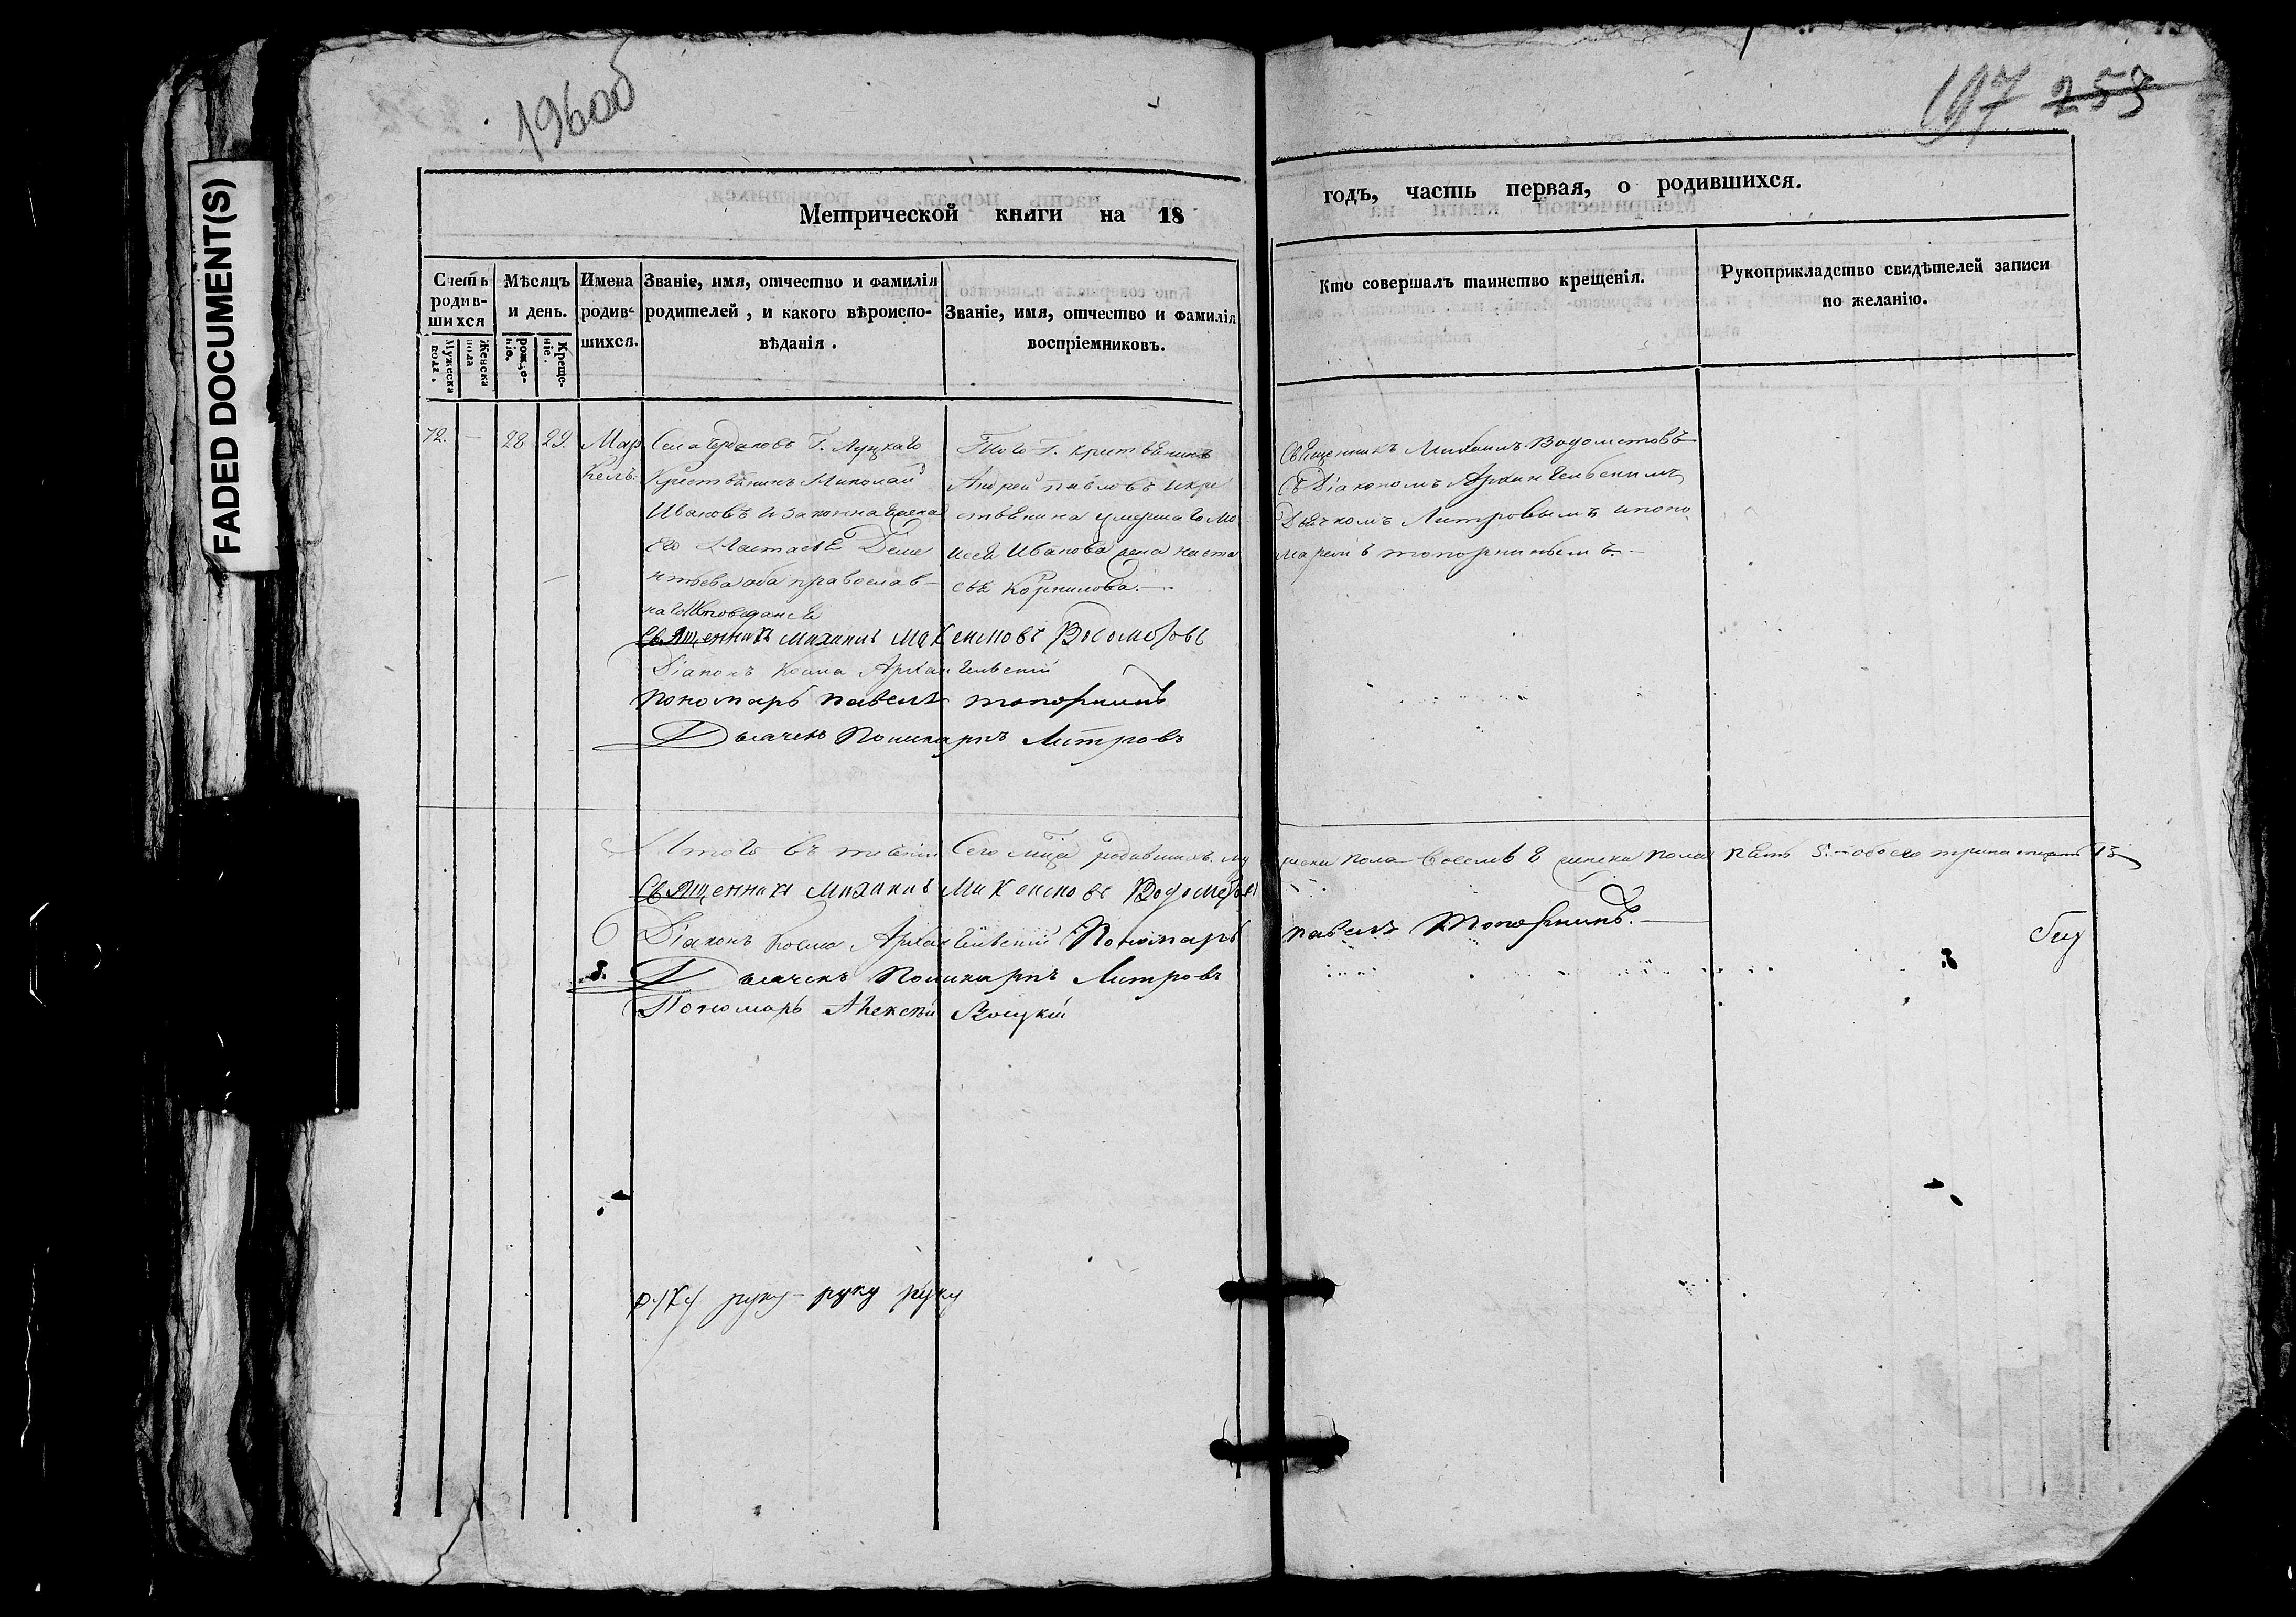 FADED DOCUMENT(S)
196об
197 253
Метрической книги на 18
годъ, часть первая, о родившихся.
Счетъ родив-шихся
Мужеска пола.
Женска пола
Мѣсяцъ и день.
рожде-нiе.
Креще-нiе.
Имена родив-шихся.
Званiе, имя, отчество и фамилiя
родителей, и какого вѣроиспо-
вѣданiя.
Званiе, имя, отчество и фамилiя
воспрiемниковъ.
Кто совершалъ таинство крещенiя.
Рукоприкладство свидѣтелей записи
по желанiю.
12. — 28 29. Мар
келъ.
Села Г. Луцкаго
Крестьянинъ Николай
Ивановъ и законная жена
его
оба православ-
наго исповеданiя
Того Г. крестьянинъ
Андрей Павловъ и кре
стьянина умершаго Мо
исея Иванова жена Наста
сья Корнилова.
Священникъ Михаилъ Водометовъ
съ Дiакономъ Архангельскимъ
Дьячкомъ Литровымъ и поно
маремъ Топорнинымъ.
Священникъ Михаилъ Максимовъ Водометовъ
Дiаконъ Косма Архангельскiй
Пономарь Павелъ Топорнинъ
Дьячекъ Поликарпъ Литровъ
Итого въ течении сего мца родившихъ. му
жеска пола восемь 8 женска пола пять 5. — обоего тринатцать 13
Священникъ Михаилъ Максимовъ Водометовъ
Дiаконъ Косма Архангельскiй Пономарь Павелъ Топорнинъ.
Дьячекъ Поликарпъ Литровъ
Пономарь Алексѣй
руку руку — руку руку